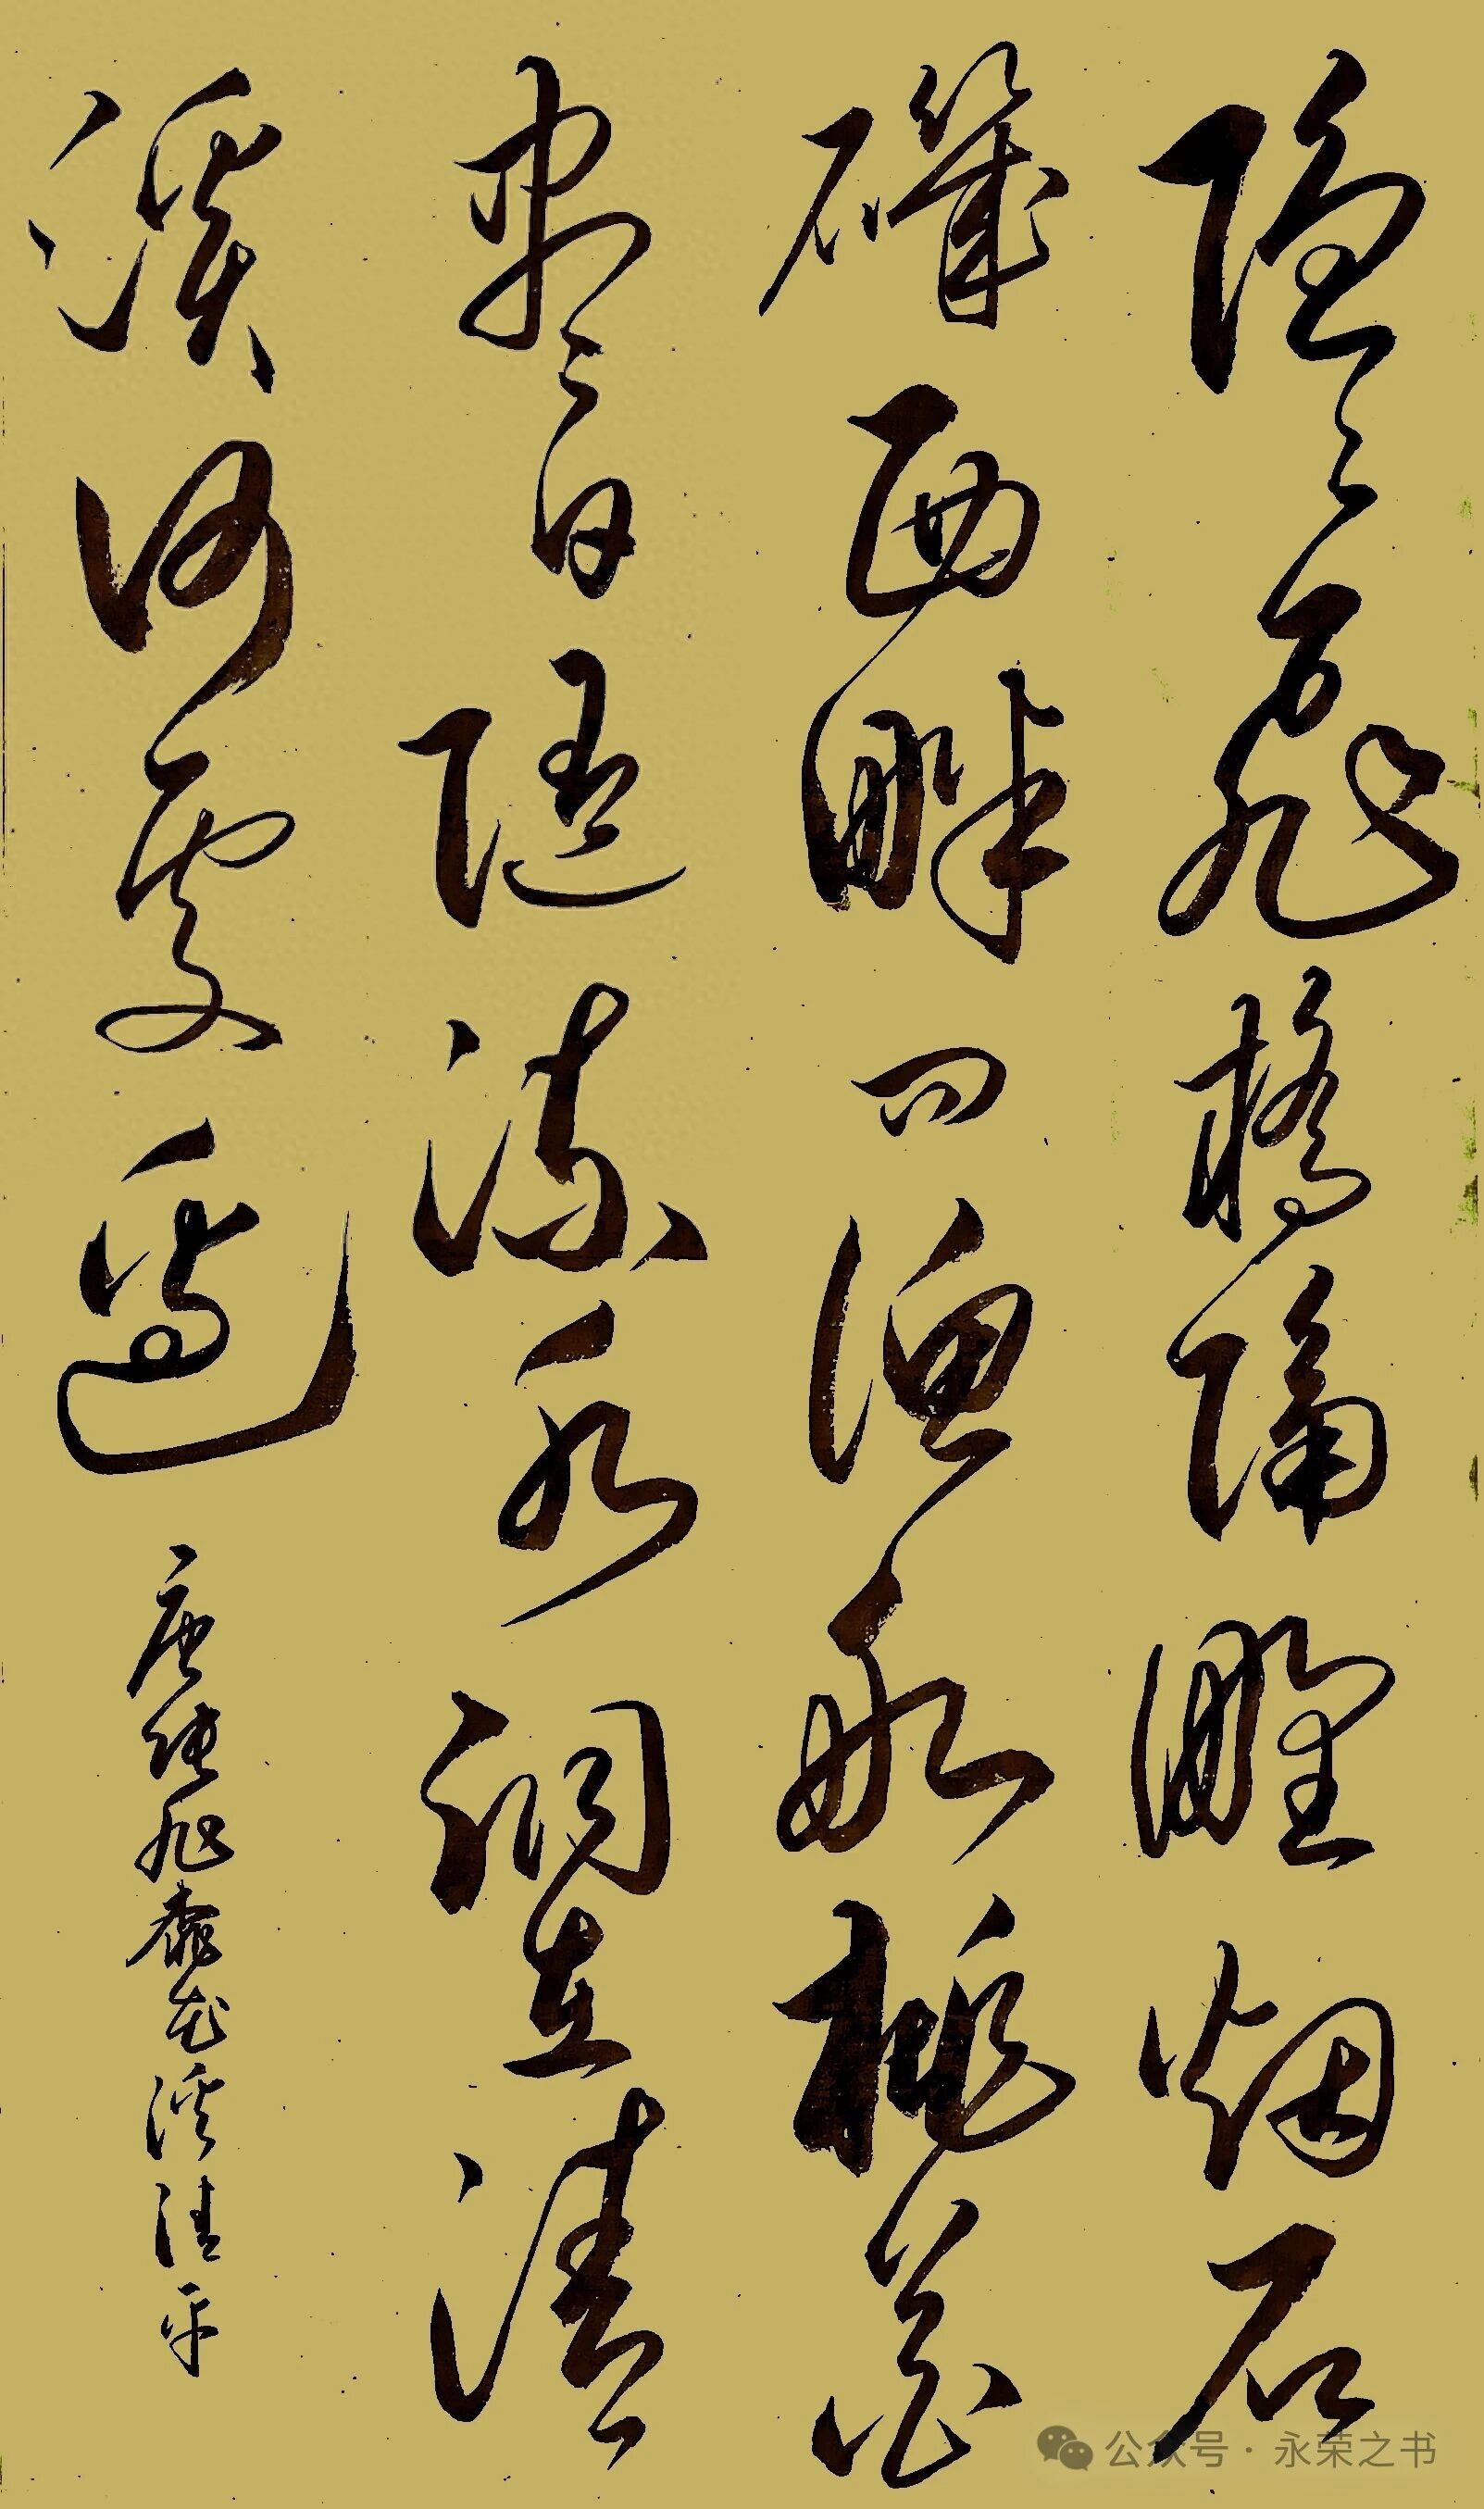 隐隐飞桥隔野烟石
矶西畔问渔船桃花
尽日随流水洞在清
溪何处边
唐张旭桃花溪清平
公众号·永荣之书